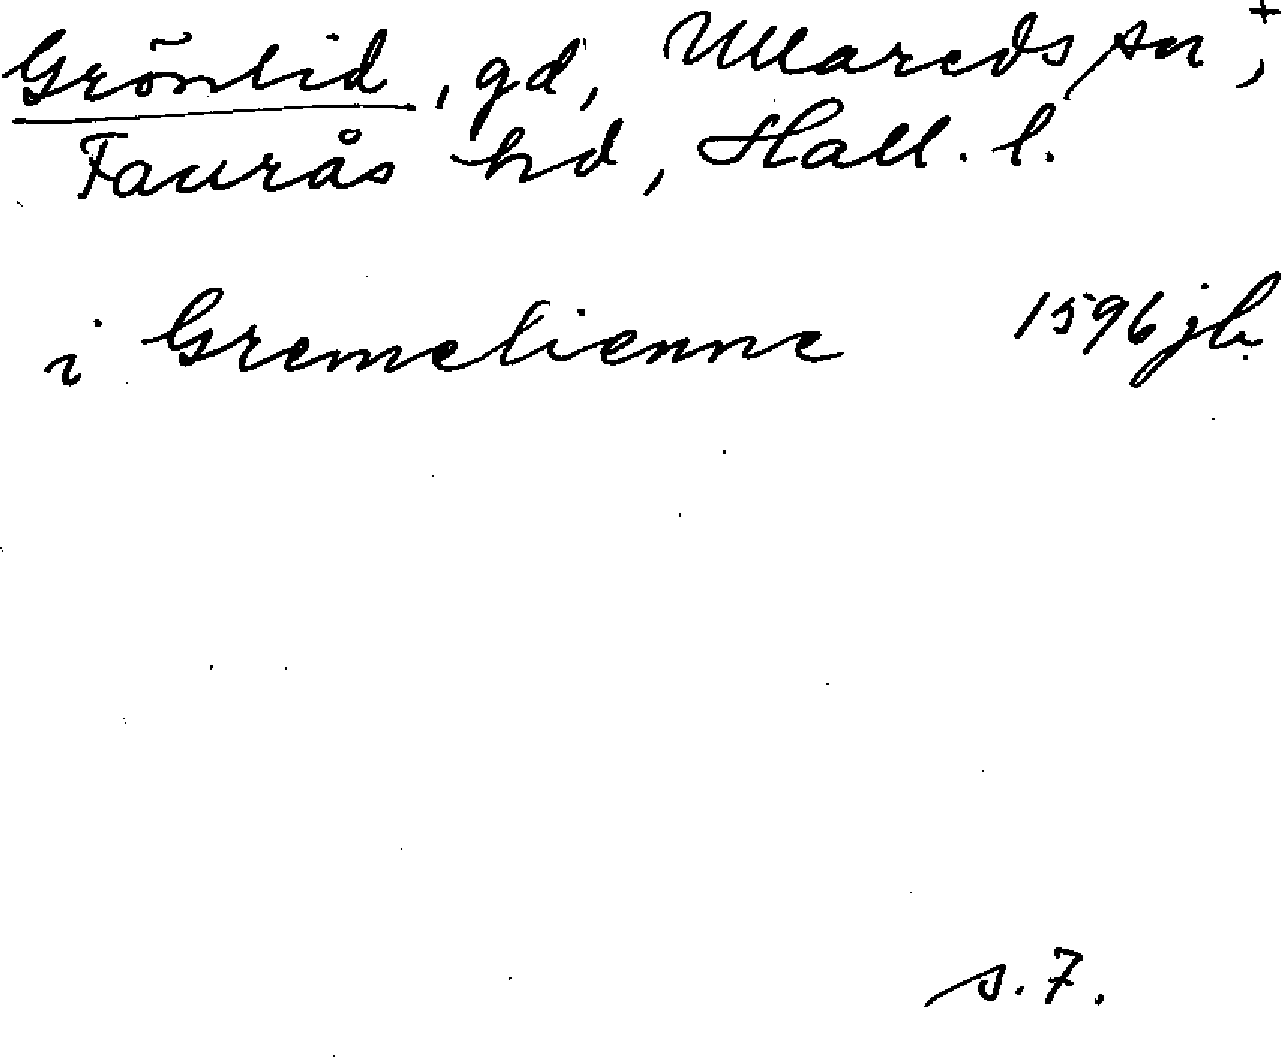 Grönlid, gd, Ullareds sn, +
Faurås hd, Hall. l.
i Gremelienne 1596 jb.
s. 7.